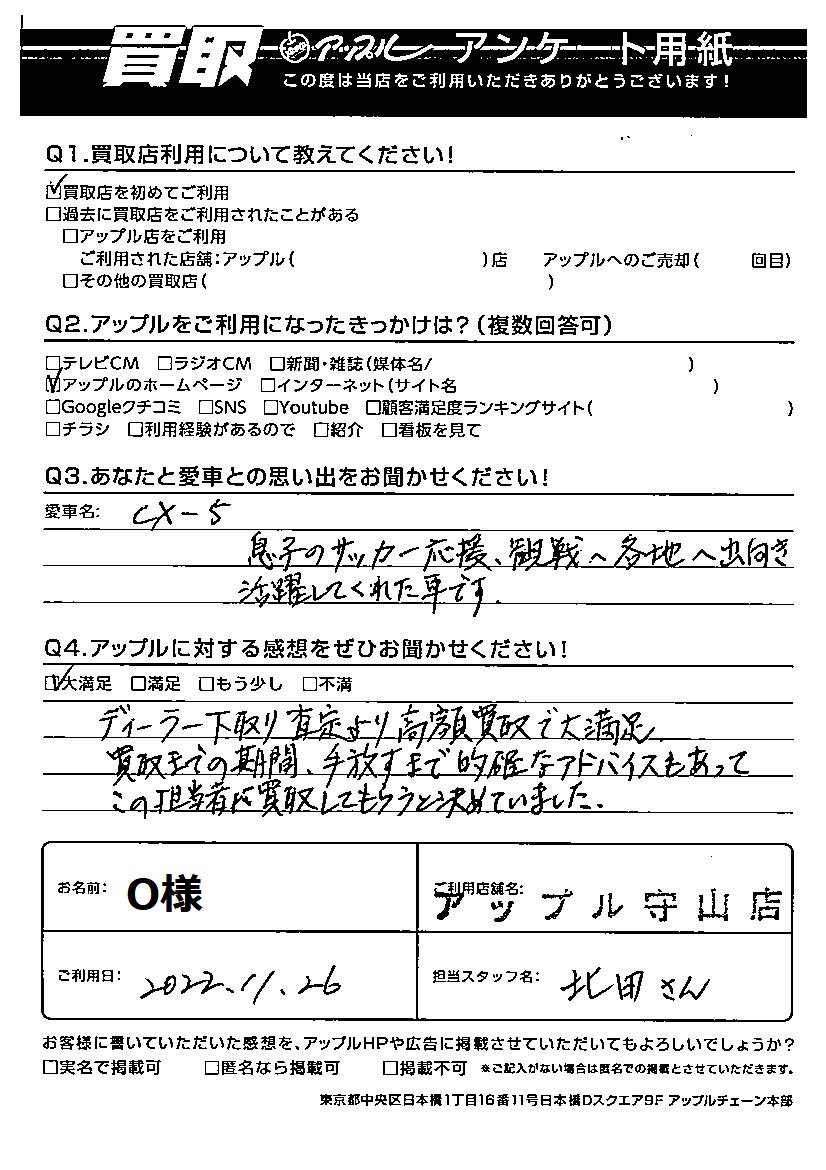 買取 アップル アンケート用紙
この度は当店をご利用いただきありがとうございます!
Q1.買取店利用について教えてください!
☑買取店を初めてご利用
□過去に買取店をご利用されたことがある
□アップル店をご利用
ご利用された店舗:アップル( )店 アップルへのご売却( 回目)
□その他の買取店( )
Q2.アップルをご利用になったきっかけは?(複数回答可)
□テレビCM □ラジオCM □新聞・雑誌(媒体名/ )
☑アップルのホームページ □インターネット(サイト名 )
□Googleクチコミ □SNS □Youtube □顧客満足度ランキングサイト( )
□チラシ □利用経験があるので □紹介 □看板を見て
Q3.あなたと愛車との思い出をお聞かせください!
愛車名: CX-5
息子のサッカー応援、観戦へ各地へ出向き
活躍してくれた車です.
Q4.アップルに対する感想をぜひお聞かせください!
☑大満足 □満足 □もう少し □不満
ディーラー下取り査定より高額買取で大満足.
買取までの期間、手放すまで的確なアドバイスもあって
この担当者に買取してもらうと決めていました.
お名前: O様
ご利用店舗名: アップル守山店
ご利用日: 2022.11.26
担当スタッフ名: 北田さん
お客様に書いていただいた感想を、アップルHPや広告に掲載させていただいてもよろしいでしょうか?
□実名で掲載可 □匿名なら掲載可 □掲載不可 ※ご記入がない場合は匿名での掲載とさせていただきます。
東京都中央区日本橋1丁目16番11号日本橋Dスクエア9F アップルチェーン本部